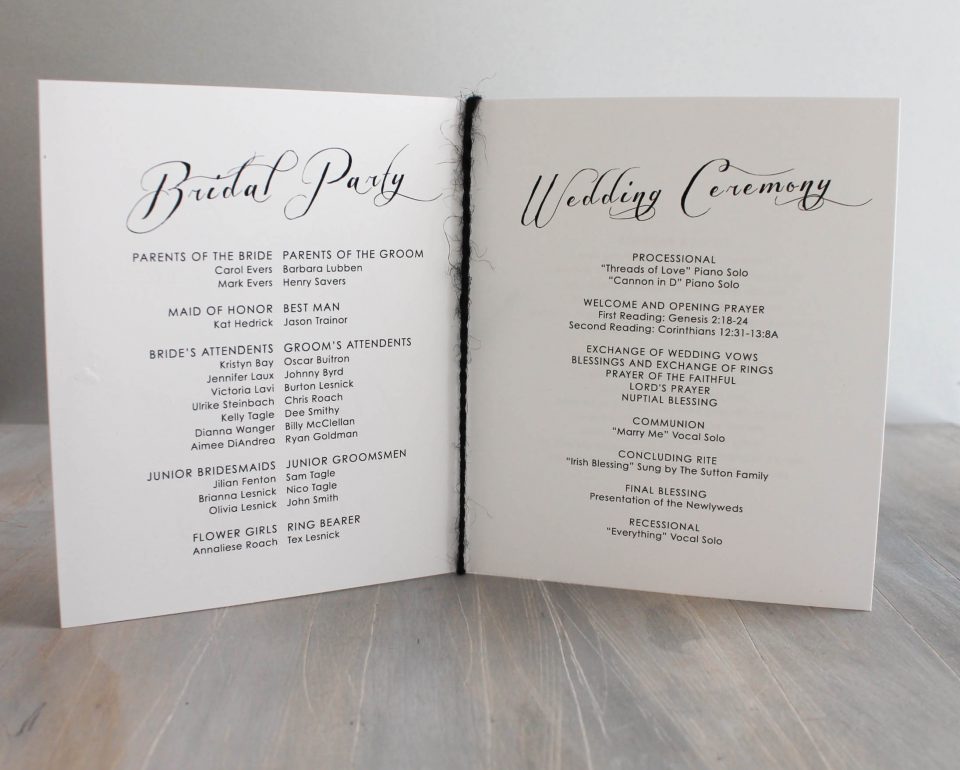 Bridal Party
PARENTS OF THE BRIDE PARENTS OF THE GROOM
Carol Evers Barbara Lubben
Mark Evers Henry Savers
MAID OF HONOR BEST MAN
Kat Hedrick Jason Trainor
BRIDE'S ATTENDENTS GROOM'S ATTENDENTS
Kristyn Bay Oscar Buitron
Jennifer Laux Johnny Byrd
Victoria Lavi Burton Lesnick
Ulrike Steinbach Chris Roach
Kelly Tagle Dee Smithy
Dianna Wanger Billy McClellan
Aimee DiAndrea Ryan Goldman
JUNIOR BRIDESMAIDS JUNIOR GROOMSMEN
Jilian Fenton Sam Tagle
Brianna Lesnick Nico Tagle
Olivia Lesnick John Smith
FLOWER GIRLS RING BEARER
Annaliese Roach Tex Lesnick
Wedding Ceremony
PROCESSIONAL
"Threads of Love" Piano Solo
"Cannon in D" Piano Solo
WELCOME AND OPENING PRAYER
First Reading: Genesis 2:18-24
Second Reading: Corinthians 12:31-13:8A
EXCHANGE OF WEDDING VOWS
BLESSINGS AND EXCHANGE OF RINGS
PRAYER OF THE FAITHFUL
LORD'S PRAYER
NUPTIAL BLESSING
COMMUNION
"Marry Me" Vocal Solo
CONCLUDING RITE
"Irish Blessing" Sung by The Sutton Family
FINAL BLESSING
Presentation of the Newlyweds
RECESSIONAL
"Everything" Vocal Solo